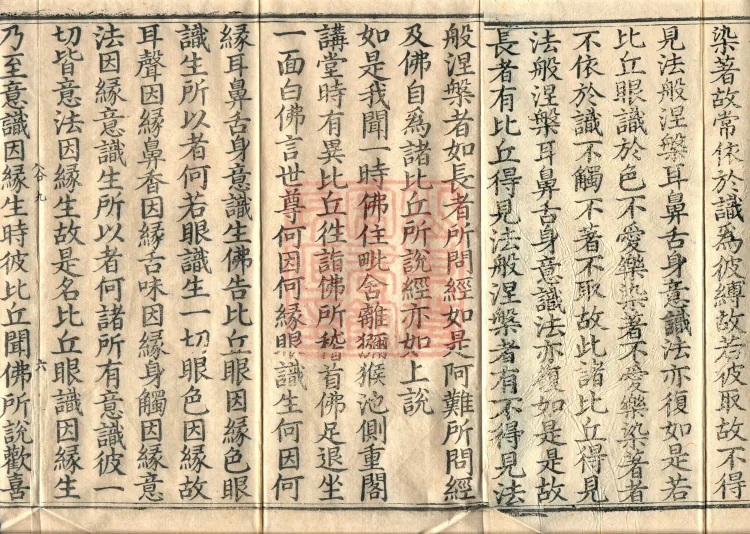 染著故常依於識爲彼縛故若彼取故不得
見法般涅槃耳鼻舌身意識法亦復如是若
比丘眼識於色不愛樂染著不愛樂染著者
不依於識不觸不著不取故此諸比丘得見
法般涅槃耳鼻舌身意識法亦復如是是故
長者有比丘得見法般涅槃者有不得見法
般涅槃者如長者所問經如是阿難所問經
及佛自爲諸比丘所說經亦如上說
如是我聞一時佛住毗舍離獼猴池側重閣
講堂時有異比丘往詣佛所稽首佛足退坐
一面白佛言世尊何因何緣眼識生何因何
緣耳鼻舌身意識生佛告比丘眼因緣色眼
識生所以者何若眼識生一切眼色因緣故
耳聲因緣鼻香因緣舌味因緣身觸因緣意
法因緣意識生所以者何諸所有意識彼一
切皆意法因緣生故是名比丘眼識因緣生
谷九 六
乃至意識因緣生時彼比丘聞佛所說歡喜